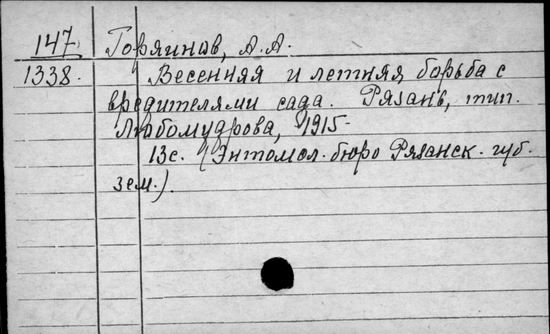 147. Горяинов, А.А.
1338. Весенняя и летняя борьба с
вредителями сада. Рязань, тип.
Любомудрова, 1915
13с. (Энтомол. бюро Рязанск. губ.
зем.).